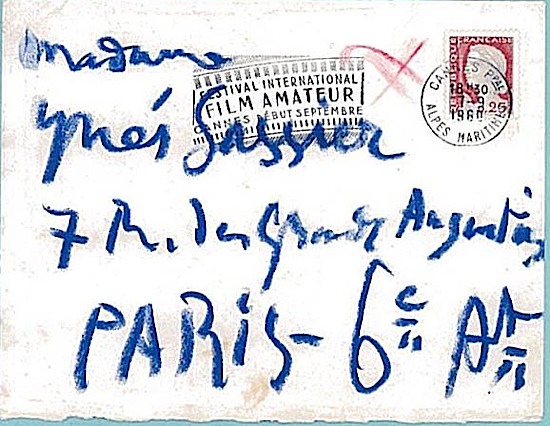 Madame
FESTIVAL INTERNATIONAL
FILM AMATEUR
CANNES DÉBUT SEPTEMBRE
Ynés Sassier
7 R. des Grands Augustins
PARIS - 6e Art
RÉPUBLIQUE FRANÇAISE
0,25
CANNES PPAL
18H30
9
1960
ALPES MARITIMES